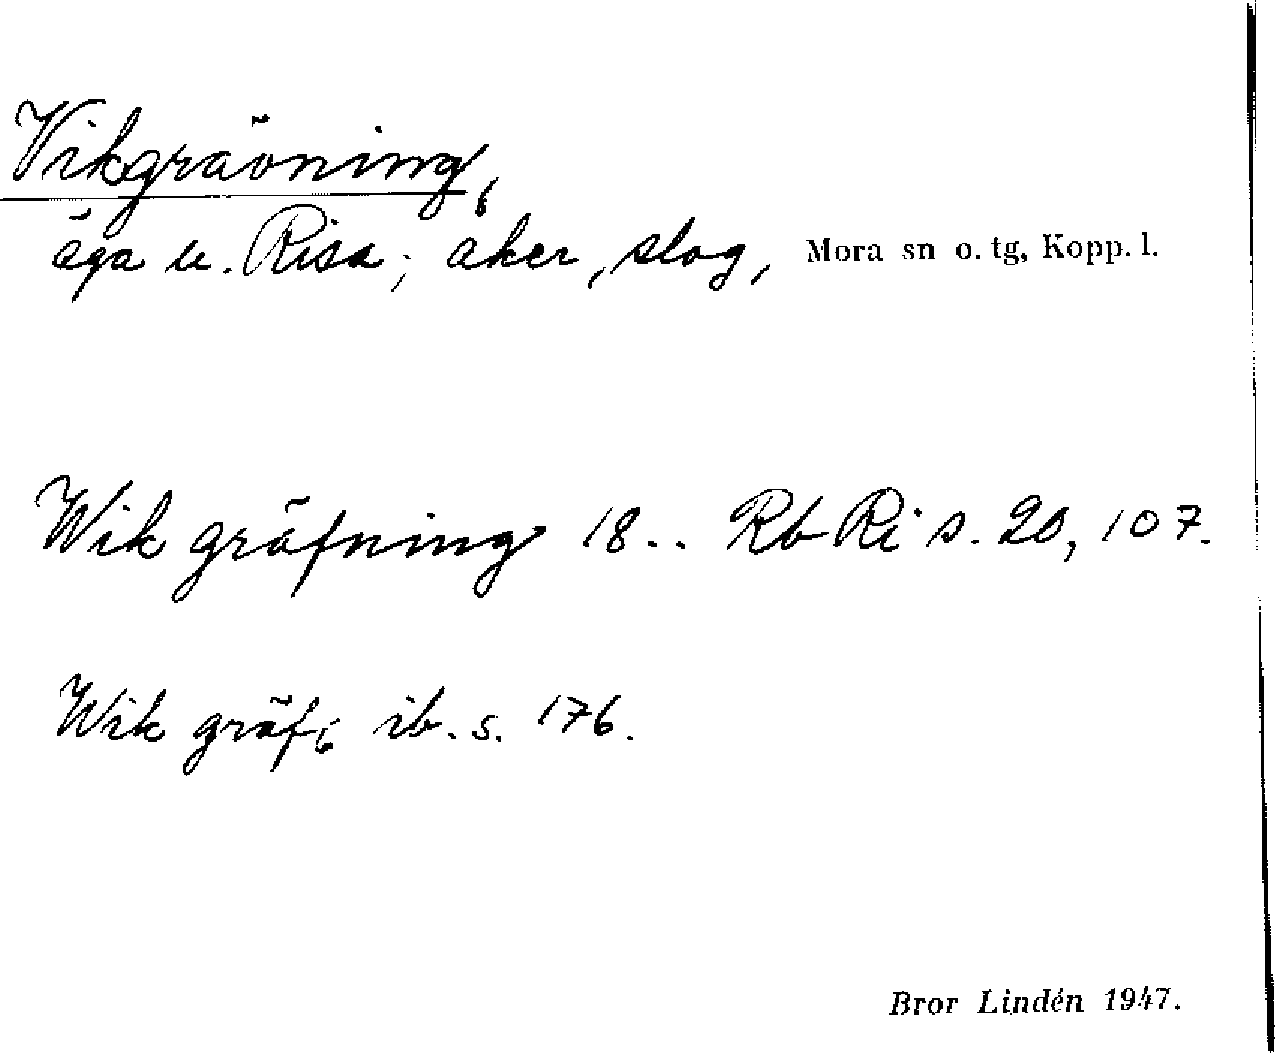 Vikgrävning,
äga u. Risa; åker, slog, Mora sn o. tg, Kopp. l.
Wik gräfning 18.. Rb Ri s. 20, 107.
Wik gräf; ib. s. 176.
Bror Lindén 1947.